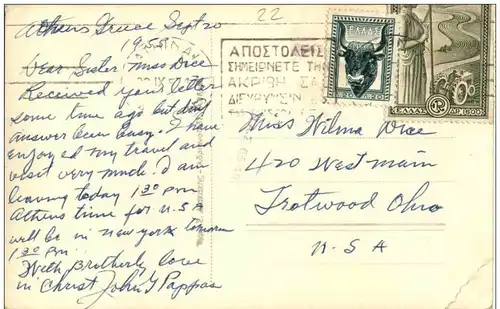 22
Athens Greece Sept 20
1955
Dear Sister Miss Dice
Received your letter
some time ago but don
answer been busy. I have
enjoyed my travel and
visit very much. I am
leaving today 1 30 P.M.
Athens time for U.S.A
will be in new york tomorow
1 30 P.M.
With Brotherly love
in Christ John G Pappas
ΑΠΟΣΤΟΛΕΙΣ
ΣΗΜΕΙΩΝΕΤΕ ΤΗΝ
ΑΚΡΙΒΗ ΣΑΣ
ΔΙΕΥΘΥΝΣΙΝ
ΕΛΛΑΣ
ΕΛΛΑΣ
ΔΡ 1600
Miss Wilma Dice
420 West Main
Trotwood Ohio
U.S.A